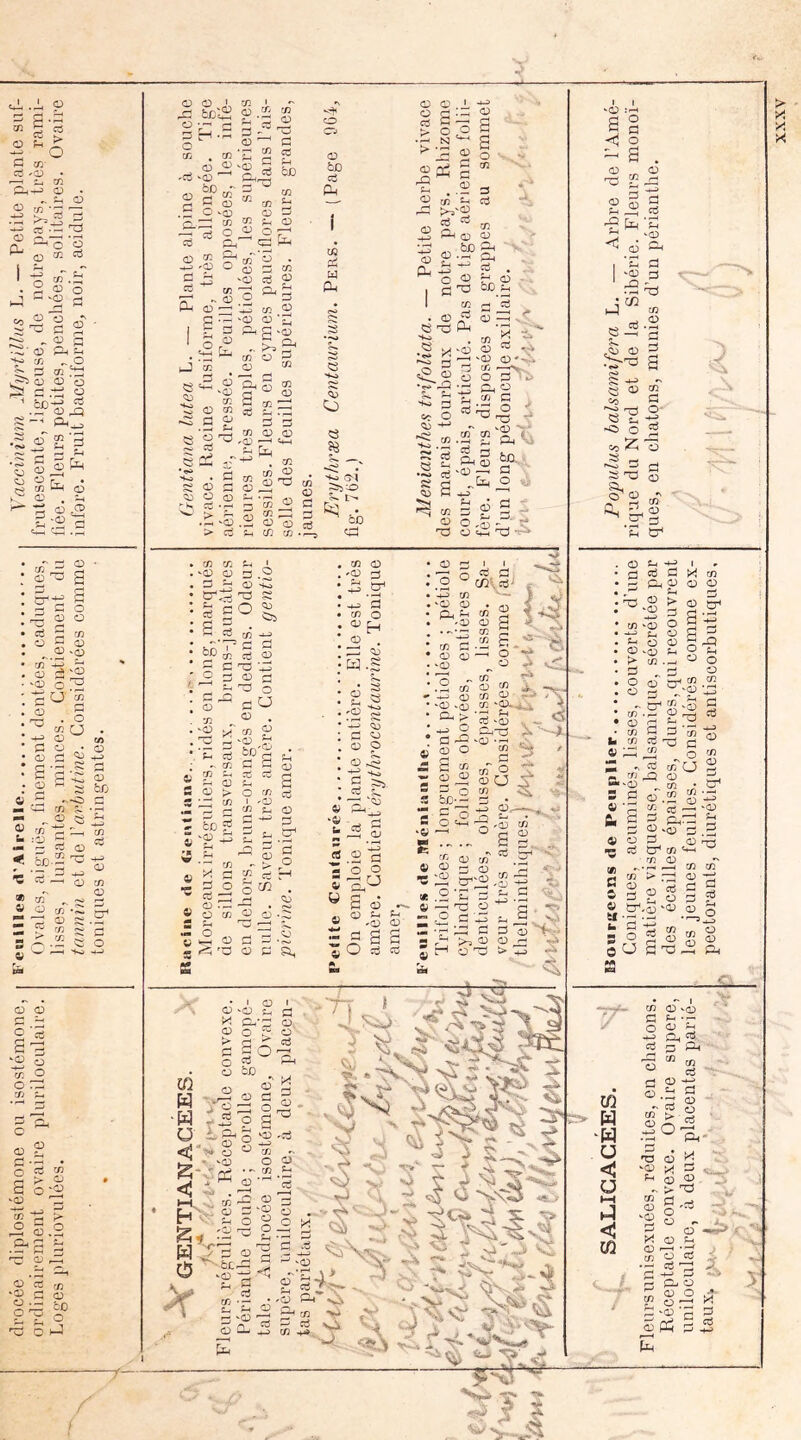 drocée diplostémone ou isostémone,
ordinairement ovaire pluriloculaire.
Loges pluriovulées.
Feuilles d'Airelle
Ovales, aiguës, finement dentées, caduques,
lisses, luisantes, minces. Contiennent du
tannin et de l'arbutine. Considérées comme
toniques et astringentes.
Vaccinium Myrtillus L. — Petite plante suf-
frutescente, ligneuse, de notre pays, très rami-
fiée. Fleurs petites, penchées, solitaires. Ovaire
infère. Fruit bacciforme, noir, acidule.
GENTIANACÉES.
Fleurs régulières. Réceptacle convexe.
Périanthe double ; corolle gamopé-
tale. Androcée isostémone, Ovaire
supère, uniloculaire, à deux placen-
tas pariétaux.
Racine de Gentiane
Morceaux irréguliers, ridés en long, marqués
de sillons transversaux, bruns-jaunâtres
en dehors, bruns-orangés en dedans. Odeur
nulle. Saveur très amère. Contient gentio-
picrine. Tonique amer.
Gentiana lutea L. — Plante alpine à souche
vivace. Racine fusiforme, très allongée. Tige
aérienne, dressée. Feuilles opposées, les infé-
rieures très amples, pétiolées, les supérieures
sessiles. Fleurs en cymes pauciflores dans l'ais-
selle des feuilles supérieures. Fleurs grandes,
jaunes.
Petite Centaurée
On emploie la plante entière. Elle est très
amère. Contient érythrocentaurine. Tonique
amer.
Erythræa Centaurium. PERS. — (Page 964,
fig. 762.)
Feuilles de Ményanthe
Trifoliolées ; longuement pétiolées ; pétiole
cylindrique ; folioles obovées, entières ou
denticulées, obtuses, épaisses, lisses. Sa-
veur très amère. Considérées comme (an-
thelminthiques.)
Menyanthes trifoliata. — Petite herbe vivace
des marais tourbeux de notre pays. Rhizome
court, épais, articulé. Pas de tige aérienne folii-
fère. Fleurs disposées en grappes au sommet
d'un long pédoncule axillaire.
SALICACÉES.
Fleurs unisexuées, réduites, en chatons.
Réceptacle convexe. Ovaire supère,
uniloculaire, à deux placentas parié-
taux.
Bourgeons de Peuplier
Coniques, acuminés, lisses, couverts d'une
matière visqueuse, balsamique, sécrétée par
des écailles épaisses, dures, qui recouvrent
les jeunes feuilles. Considérés comme ex-
pectorants, diurétiques et antiscorbutiques.
Populus balsamifera L. — Arbre de l'Amé-
rique du Nord et de la Sibérie. Fleurs monoï-
ques, en chatons, munies d'un périanthe.
XXXV